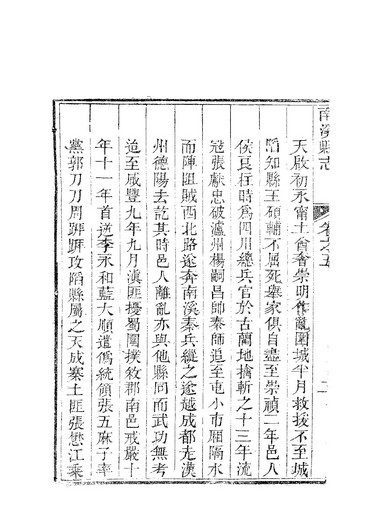 南溪縣志
卷之五
二
天啟初永甯土酋奢崇明作亂圍城半月救援不至城
陷知縣王碩輔不屈死舉家俱自盡至崇禎二年邑人
侯良柱時為四川總兵官於古藺地擒斬之十三年流
寇張獻忠破瀘州楊嗣昌帥秦師追至屯小市厢隔水
而陣阻賊西北路遂奔南溪秦兵縱之途越成都走漢
州德陽去訖其時邑人離亂亦與他縣同而武功無考
迨至咸豐九年九月滇匪擾蜀闌撲敘郡南邑戒嚴十
年十一年首逆李永和藍大順遣偽統領張五麻子率
黨郭刀刀周跰跰攻陷縣屬之天成寨土匪張懋江乘